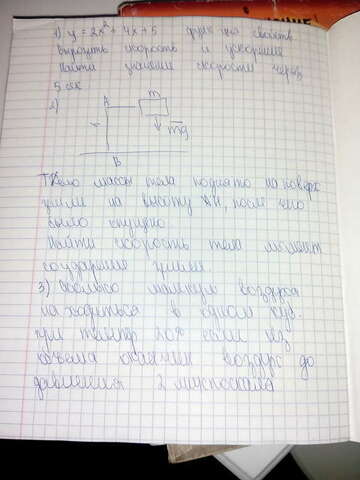 1) y = 2x² + 4x + 5
выразить скорость и ускорение
Найти значение скорости через
5 сек
2) A m
h mg
B
Тело массы тела поднято на поверх
земли на высоту H, после чего
было опущено
Найти скорость тела момент
соударение земли.
3) Сколько молекул воздуха
находиться в одном куб.
при темпер 20° если из
объема воздух до
давления 2